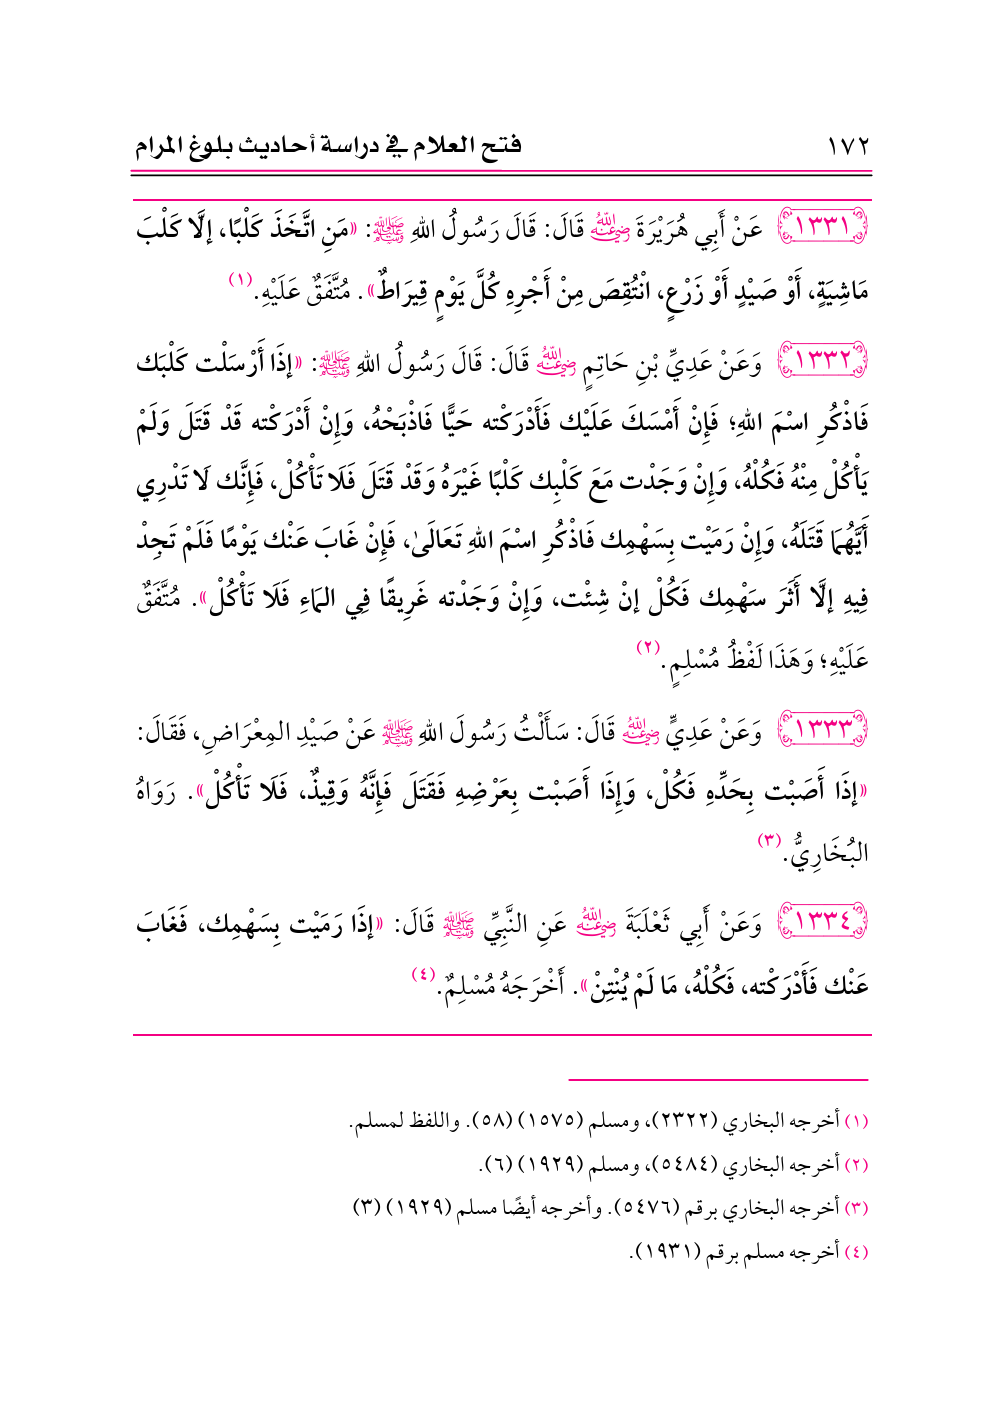 ١٧٢ فتح العلام في دراسة أحاديث بلوغ المرام
﴿١٣٣١﴾ عَنْ أَبِي هُرَيْرَةَ رضي الله عنه قَالَ: قَالَ رَسُولُ اللهِ ﷺ: «مَنِ اتَّخَذَ كَلْبًا، إلَّا كَلْبَ
مَاشِيَةٍ، أَوْ صَيْدٍ أَوْ زَرْعٍ، انْتُقِصَ مِنْ أَجْرِهِ كُلَّ يَوْمٍ قِيرَاطٌ». مُتَّفَقٌ عَلَيْهِ.(١)
﴿١٣٣٢﴾ وَعَنْ عَدِيِّ بْنِ حَاتِمٍ رضي الله عنه قَالَ: قَالَ رَسُولُ اللهِ ﷺ: «إذَا أَرْسَلْت كَلْبَك
فَاذْكُرِ اسْمَ اللهِ؛ فَإِنْ أَمْسَكَ عَلَيْك فَأَدْرَكْته حَيًّا فَاذْبَحْهُ، وَإِنْ أَدْرَكْته قَدْ قَتَلَ وَلَمْ
يَأْكُلْ مِنْهُ فَكُلْهُ، وَإِنْ وَجَدْت مَعَ كَلْبِك كَلْبًا غَيْرَهُ وَقَدْ قَتَلَ فَلَا تَأْكُلْ، فَإِنَّك لَا تَدْرِي
أَيَّهُمَا قَتَلَهُ، وَإِنْ رَمَيْت بِسَهْمِك فَاذْكُرِ اسْمَ اللهِ تَعَالَىٰ، فَإِنْ غَابَ عَنْك يَوْمًا فَلَمْ تَجِدْ
فِيهِ إلَّا أَثَرَ سَهْمِك فَكُلْ إنْ شِئْت، وَإِنْ وَجَدْته غَرِيقًا فِي المَاءِ فَلَا تَأْكُلْ». مُتَّفَقٌ
عَلَيْهِ؛ وَهَذَا لَفْظُ مُسْلِمٍ.(٢)
﴿١٣٣٣﴾ وَعَنْ عَدِيٍّ رضي الله عنه قَالَ: سَأَلْتُ رَسُولَ اللهِ ﷺ عَنْ صَيْدِ المِعْرَاضِ، فَقَالَ:
«إذَا أَصَبْت بِحَدِّهِ فَكُلْ، وَإِذَا أَصَبْت بِعَرْضِهِ فَقَتَلَ فَإِنَّهُ وَقِيذٌ، فَلَا تَأْكُلْ». رَوَاهُ
البُخَارِيُّ.(٣)
﴿١٣٣٤﴾ وَعَنْ أَبِي ثَعْلَبَةَ رضي الله عنه عَنِ النَّبِيِّ ﷺ قَالَ: «إذَا رَمَيْت بِسَهْمِك، فَغَابَ
عَنْك فَأَدْرَكْته، فَكُلْهُ، مَا لَمْ يُنْتِنْ». أَخْرَجَهُ مُسْلِمٌ.(٤)
(١) أخرجه البخاري (٢٣٢٢)، ومسلم (١٥٧٥) (٥٨). واللفظ لمسلم.
(٢) أخرجه البخاري (٥٤٨٤)، ومسلم (١٩٢٩) (٦).
(٣) أخرجه البخاري برقم (٥٤٧٦). وأخرجه أيضًا مسلم (١٩٢٩) (٣)
(٤) أخرجه مسلم برقم (١٩٣١).